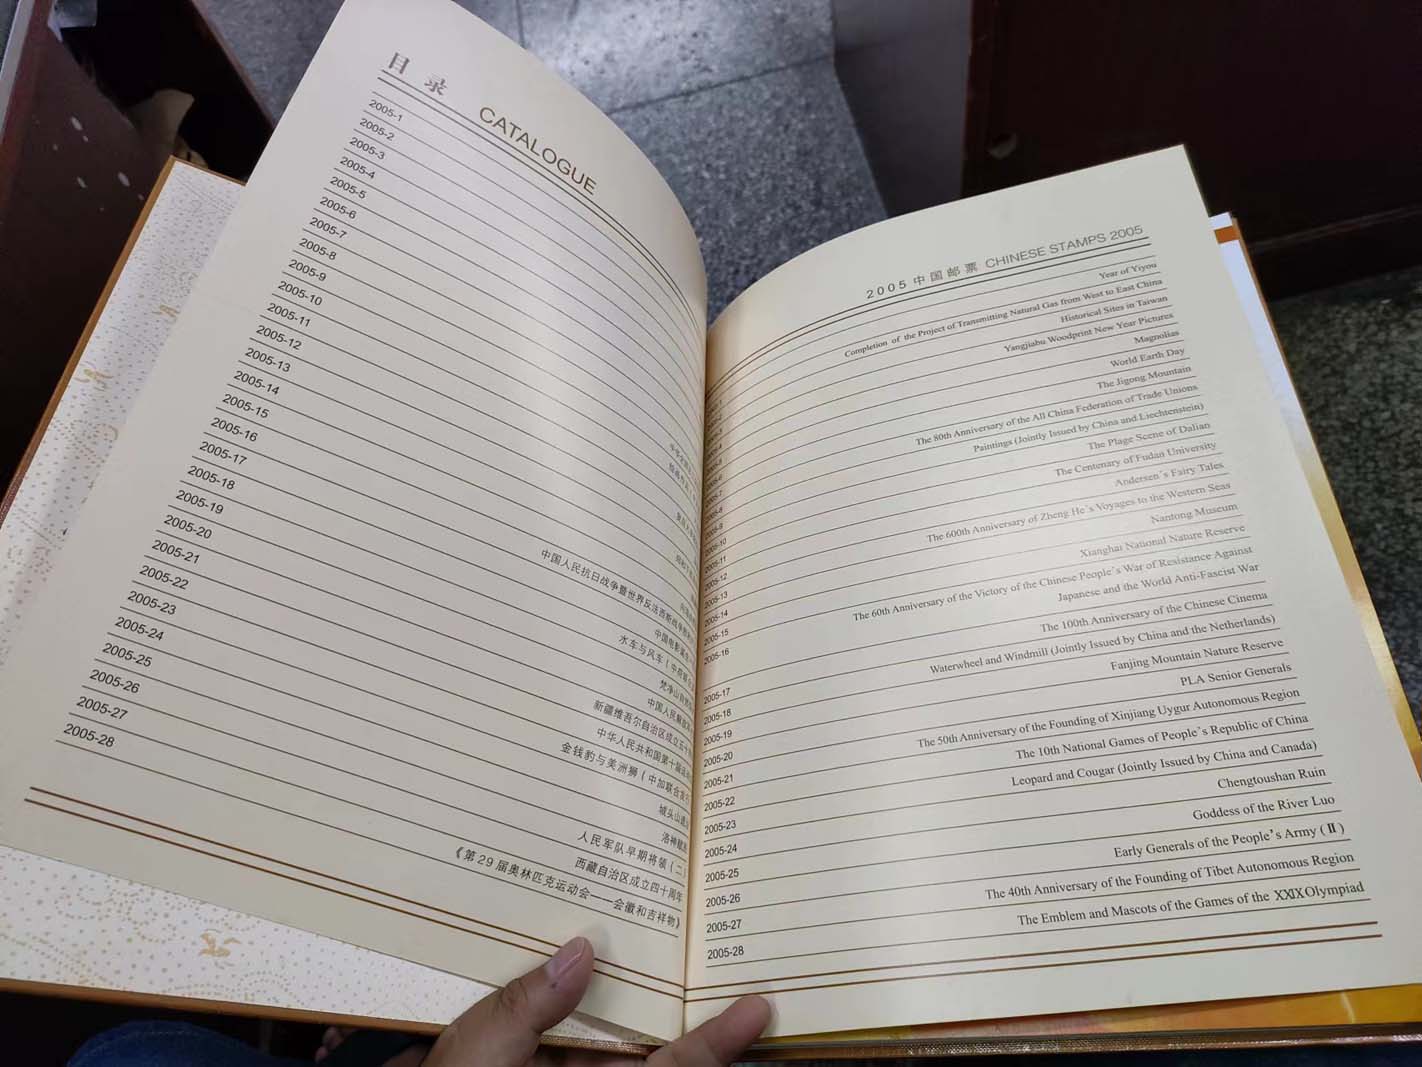 目录 CATALOGUE
2005-1
2005-2
2005-3
2005-4
2005-5
2005-6
2005-7
2005-8
2005-9
2005-10
2005-11
2005-12
2005-13
2005-14
2005-15
2005-16
中国人民抗日战争暨世界反法西斯战争胜利
2005-17
中国电影诞生一
2005-18
水车与风车(中荷联合
2005-19
梵净山自然
2005-20
中国人民解放军
2005-21
新疆维吾尔自治区成立五十
2005-22
中华人民共和国第十届运动
2005-23
金钱豹与美洲狮(中加联合发行
2005-24
城头山遗
2005-25
洛神赋
2005-26
人民军队早期将领(二)
2005-27
西藏自治区成立四十周年
2005-28
《第29届奥林匹克运动会——会徽和吉祥物》
2005中国邮票 CHINESE STAMPS 2005
Year of Yiyou
Completion of the Project of Transmitting Natural Gas from West to East China
Historical Sites in Taiwan
Yangjiabu Woodprint New Year Pictures
Magnolias
World Earth Day
The Jigong Mountain
The 80th Anniversary of the All China Federation of Trade Unions
Paintings (Jointly Issued by China and Liechtenstein)
2005-10 The Plage Scene of Dalian
2005-11 The Centenary of Fudan University
2005-12 Andersen's Fairy Tales
2005-13 The 600th Anniversary of Zheng He's Voyages to the Western Seas
2005-14 Nantong Museum
2005-15 Xianghai National Nature Reserve
2005-16 The 60th Anniversary of the Victory of the Chinese People's War of Resistance Against
Japanese and the World Anti-Fascist War
2005-17 The 100th Anniversary of the Chinese Cinema
2005-18 Waterwheel and Windmill (Jointly Issued by China and the Netherlands)
2005-19 Fanjing Mountain Nature Reserve
2005-20 PLA Senior Generals
2005-21 The 50th Anniversary of the Founding of Xinjiang Uygur Autonomous Region
2005-22 The 10th National Games of People's Republic of China
2005-23 Leopard and Cougar (Jointly Issued by China and Canada)
2005-24 Chengtoushan Ruin
2005-25 Goddess of the River Luo
2005-26 Early Generals of the People's Army (II)
2005-27 The 40th Anniversary of the Founding of Tibet Autonomous Region
2005-28 The Emblem and Mascots of the Games of the XXIX Olympiad